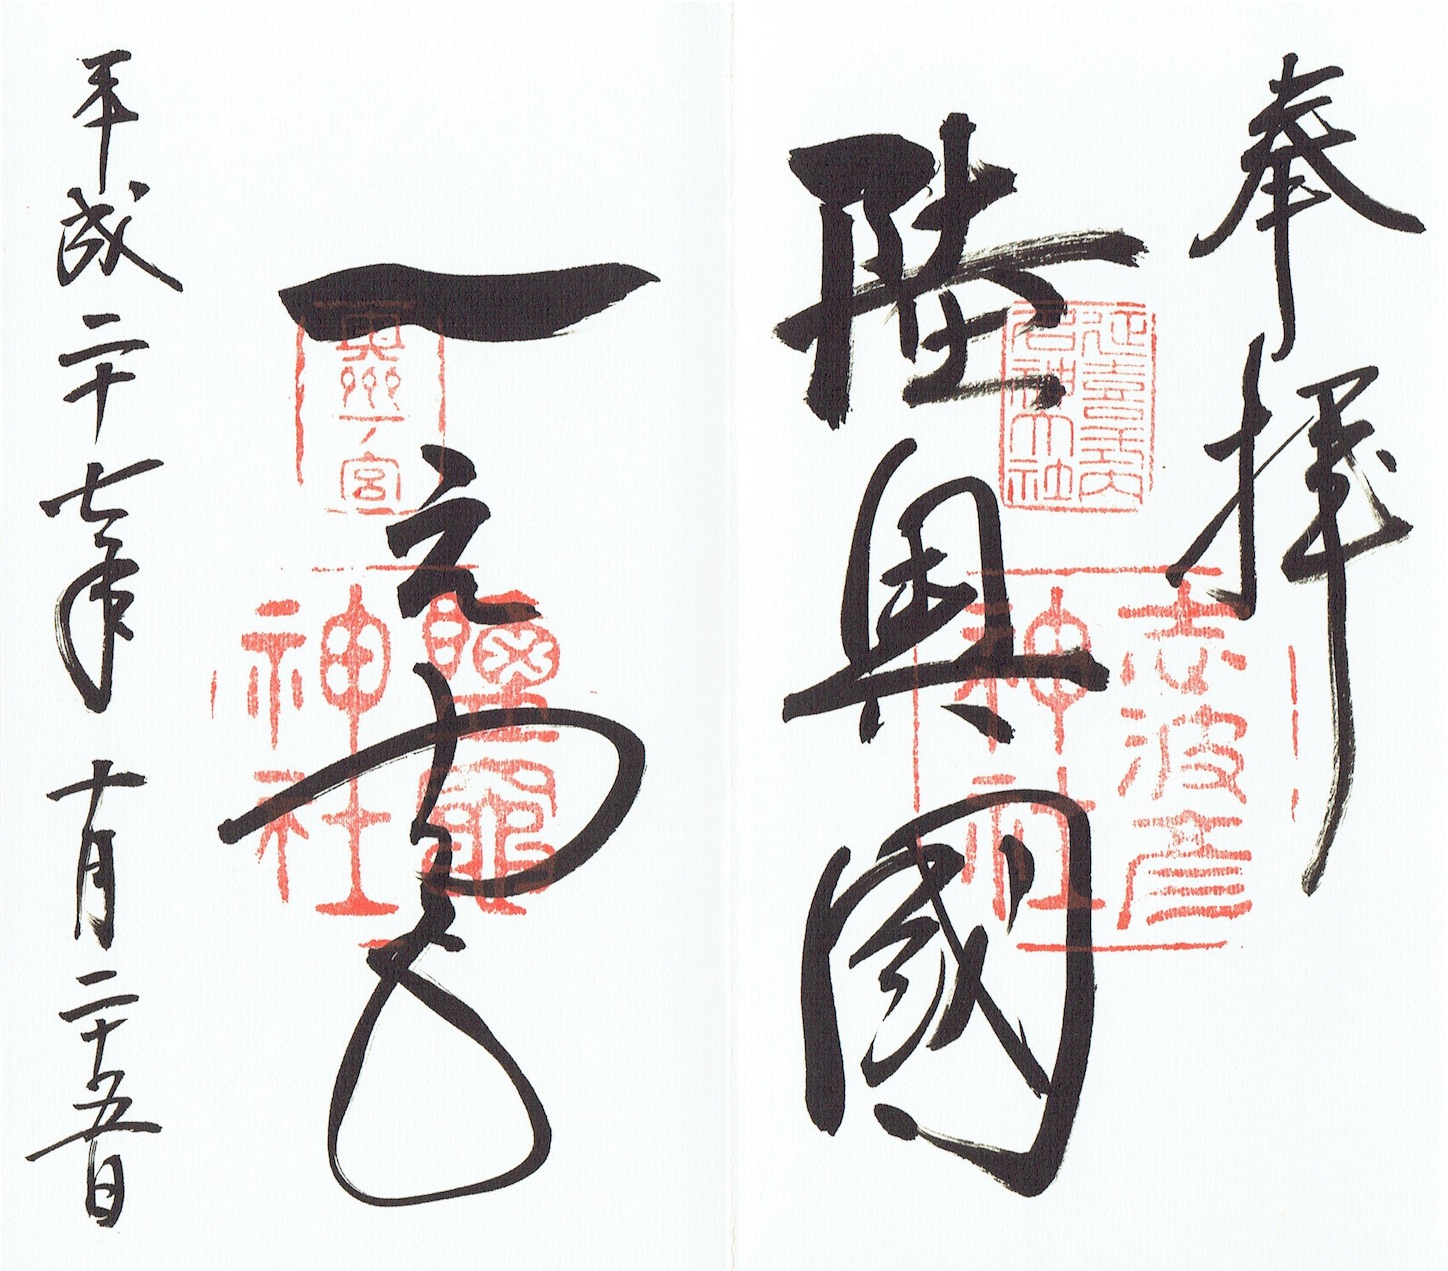 奉拝
延喜式内名神大社
志波彦神社
陸奥國
一之宮
奥州一ノ宮
鹽竈神社
平成二十七年十月二十五日